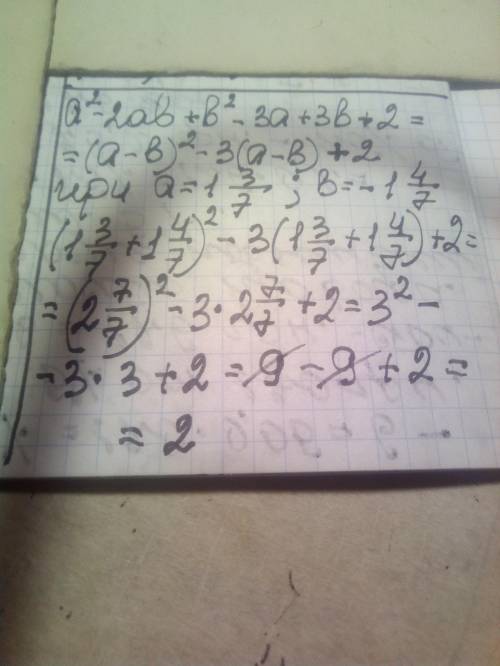 a² - 2ab + b² - 3a + 3b + 2 =
= (a - b)² - 3(a - b) + 2
при a = 1 3/7 ; b = -1 4/7
(1 3/7 + 1 4/7)² - 3(1 3/7 + 1 4/7) + 2 =
= (2 7/7)² - 3 · 2 7/7 + 2 = 3² -
- 3 · 3 + 2 = 9 - 9 + 2 =
= 2